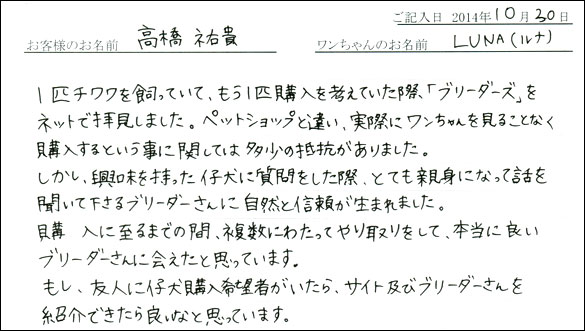 ご記入日 2014年10月30日
お客様のお名前 高橋 祐貴 ワンちゃんのお名前 LUNA(ルナ)
1匹チワワを飼っていて、もう1匹購入を考えていた際、「ブリーダーズ」を
ネットで拝見しました。ペットショップと違い、実際にワンちゃんを見ることなく
購入するという事に関しては多少の抵抗がありました。
しかし、興味を持った仔犬に質問をした際、とても親身になって話を
聞いて下さるブリーダーさんに自然と信頼が生まれました。
購入に至るまでの間、複数にわたってやり取りをして、本当に良い
ブリーダーさんに会えたと思っています。
もし、友人に仔犬購入希望者がいたら、サイト及びブリーダーさんを
紹介できたら良いなと思っています。